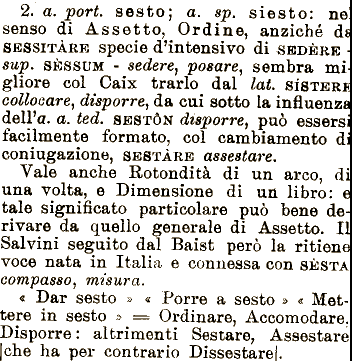 2. a. port. sesto; a. sp. siesto: nel
senso di Assetto, Ordine, anziché da
SESSITÀRE specie d'intensivo di SEDÈRE -
sup. SÈSSUM - sedere, posare, sembra mi-
gliore col Caix trarlo dal lat. SÍSTERE
collocare, disporre, da cui sotto la influenza
dell'a. a. ted. SESTÔN disporre, può essersi
facilmente formato, col cambiamento di
coniugazione, SESTÀRE assestare.
Vale anche Rotondità di un arco, di
una volta, e Dimensione di un libro: e
tale significato particolare può bene de-
rivare da quello generale di Assetto. Il
Salvini seguito dal Baist però la ritiene
voce nata in Italia e connessa con SÈSTA
compasso, misura.
« Dar sesto » « Porre a sesto » « Met-
tere in sesto » = Ordinare, Accomodare.
Disporre: altrimenti Sestare, Assestare
|che ha per contrario Dissestare|.